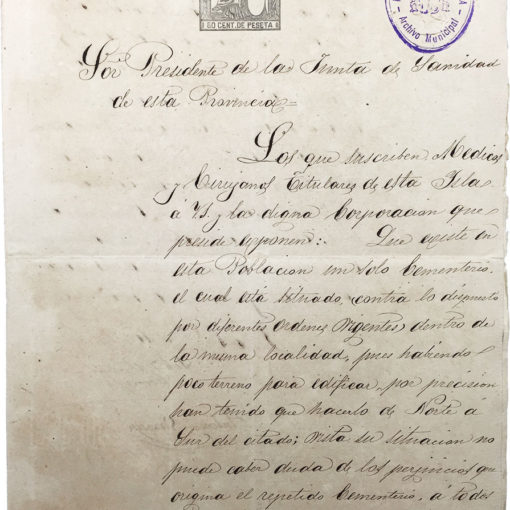 50 CENT. DE PESETA
Archivo Municipal
Sor Presidente de la Junta de Sanidad
de esta Provincia=
Los que suscriben Medicos
y Cirujanos Titulares de esta Isla
á VS. y la digna Corporacion que
preside exponen: Que existe en
esta Poblacion un solo Cementerio
el cual está situado, contra lo dispuesto
por diferentes ordenes vigentes, dentro de
la misma localidad, pues habiendo
poco terreno para edificar, por precision
han tenido que hacerlo de Norte á
Sur del citado; vista su situacion no
puede caber duda de los perjuicios que
origina el repetido Cementerio, á todos